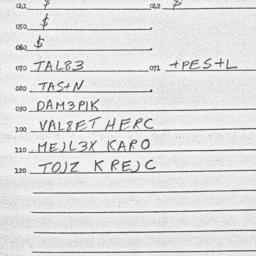 041 $ 042 $
050 $
060 $
070 TAL83 071 +PES+L
080 TAS+N
090 DAM3PIK
100 VAL8ET HERC
110 MEJL3X KARO
120 TOJZ KREJC